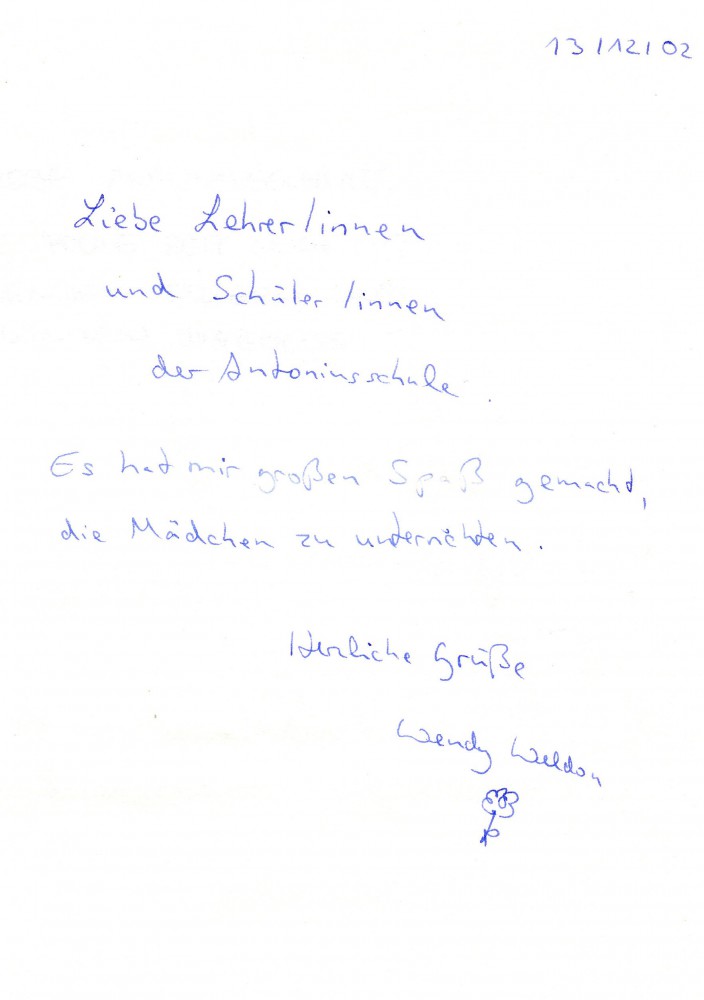 13/12/02
Liebe Lehrer/innen
und Schüler/innen
der Antoniusschule.
Es hat mir großen Spaß gemacht,
die Mädchen zu unterrichten.
Herzliche Grüße
Wendy Weldon